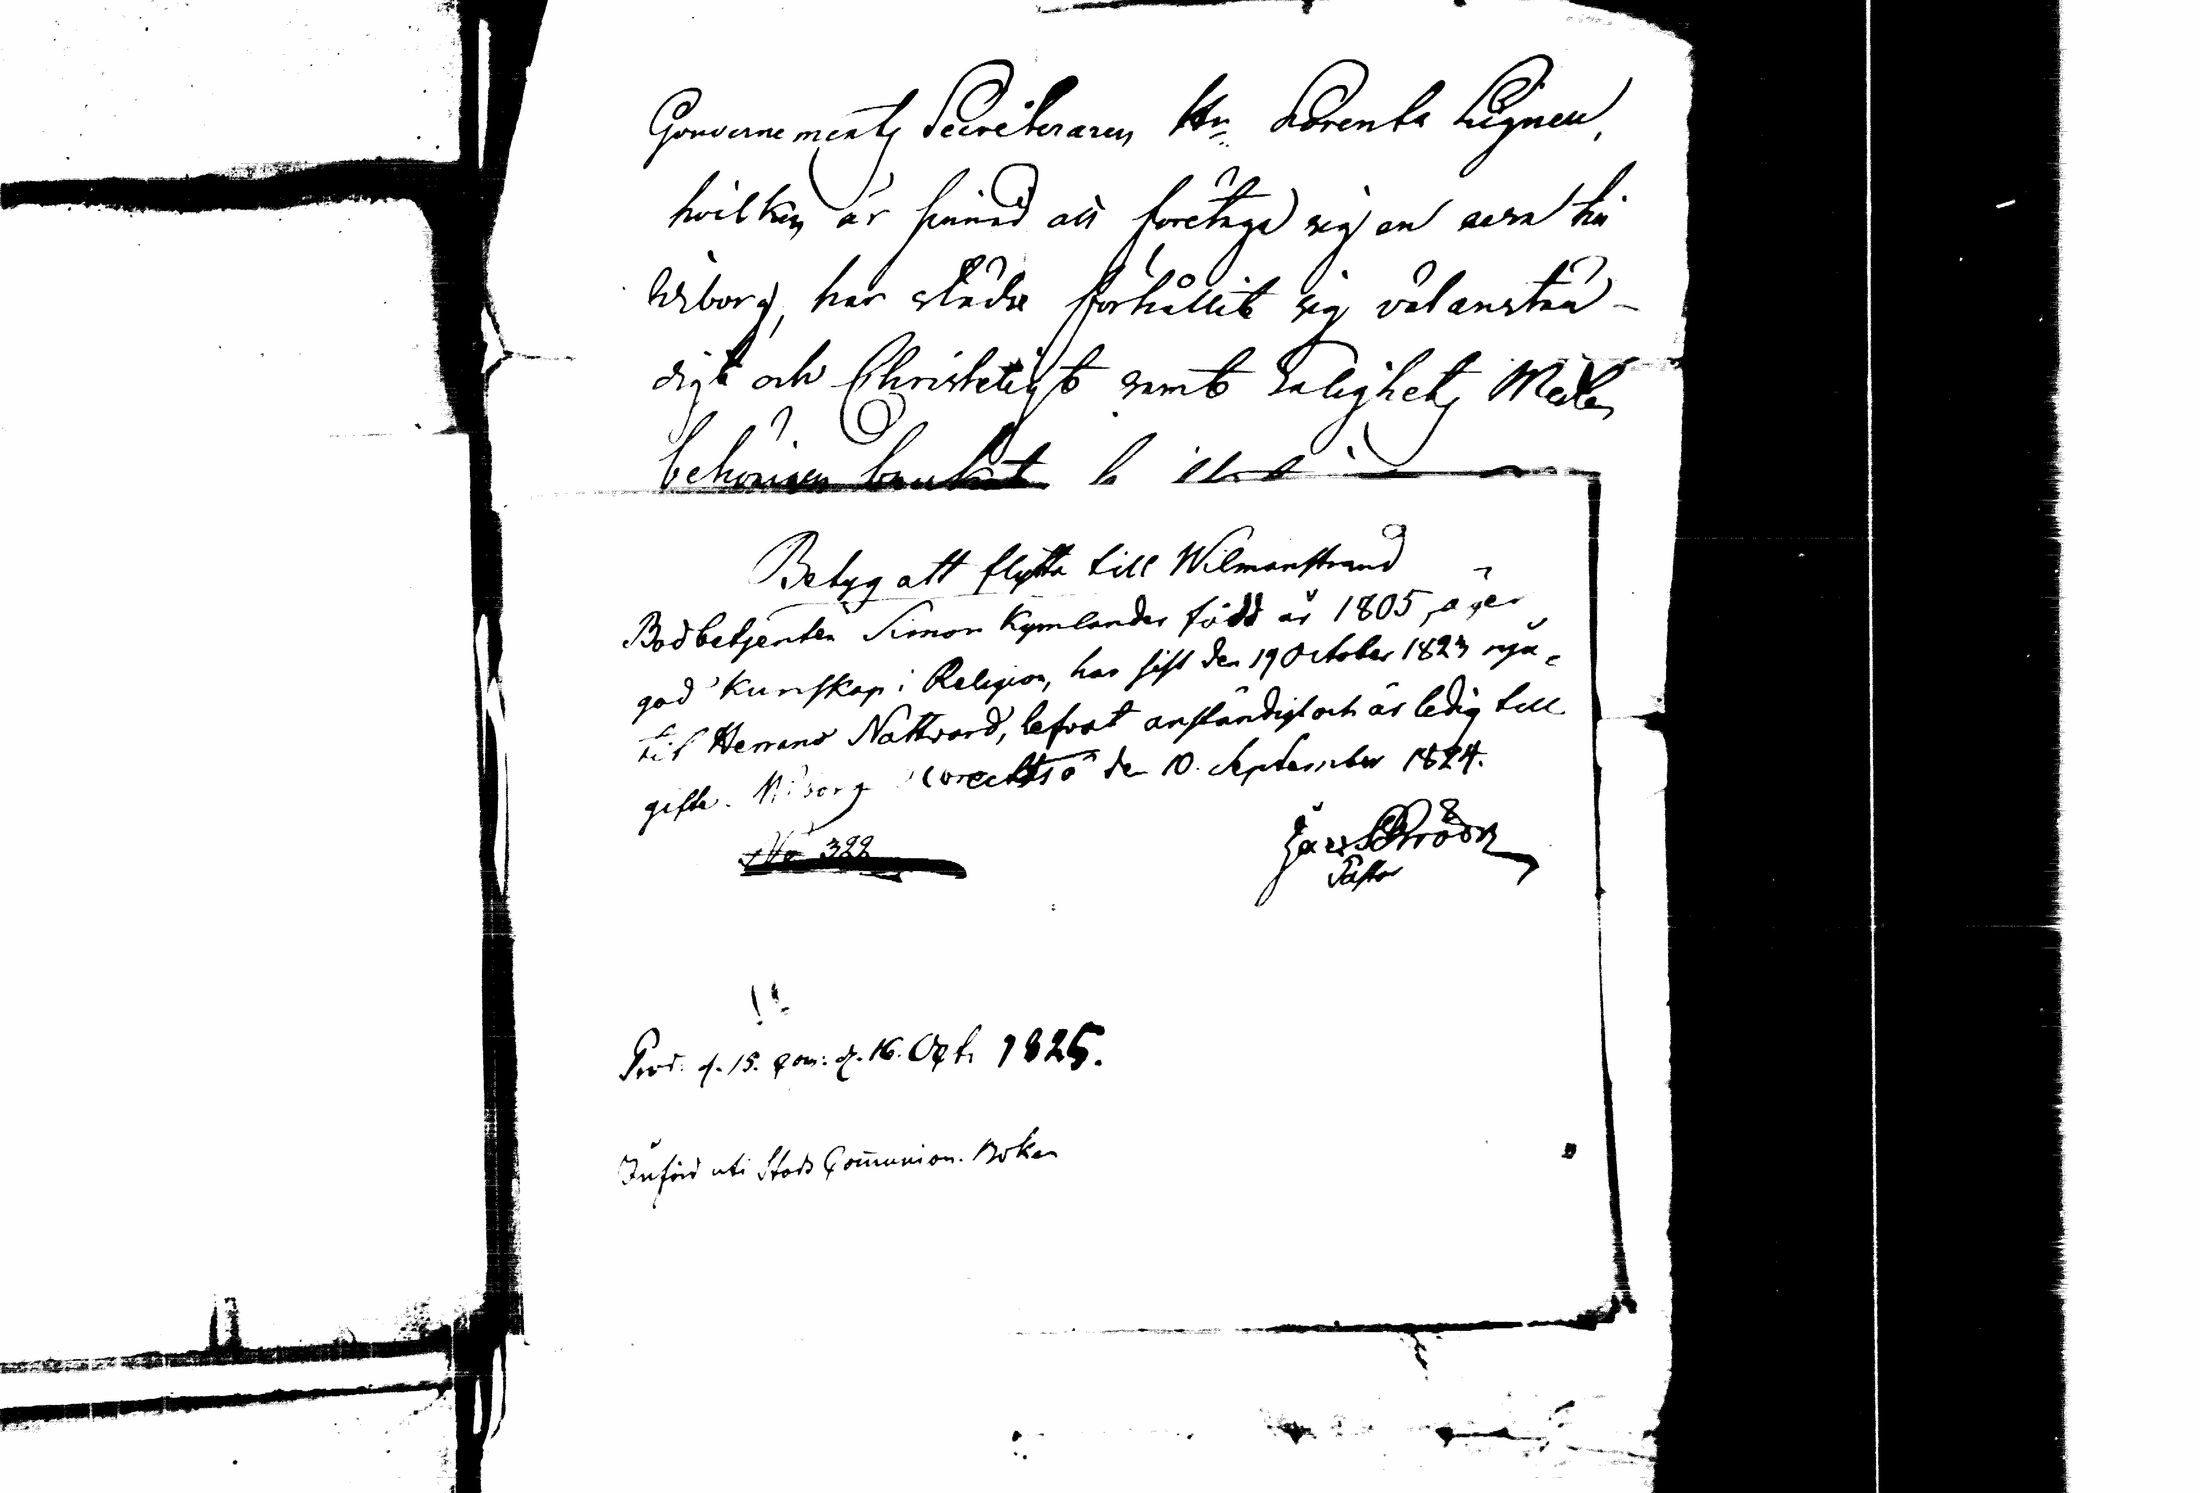 Gouvernements Secreteraren Hr Lorents Lignell,
hvilken är sinnad att företaga sig en resa till
Wiborg, har städse förhållit sig välanstän-
digt och Christeligt samt Salighets Medlen
behörigen brukat
Betyg att flytta till Wilmanstrand
Bodbetjenten Simon Kymlander född år 1805, äger
god Kunskap i Religion, har sist den 19 October 1823 nju=
tit Herrans Nattvard, lefvat anständigt och är ledig till
gifte. Wiborg den 10. September 1824.
No 322
Schröder
Pastor
Prod. d. 15. Com: d. 16. Oct. 1825.
Införd uti Stads Communion. Boken